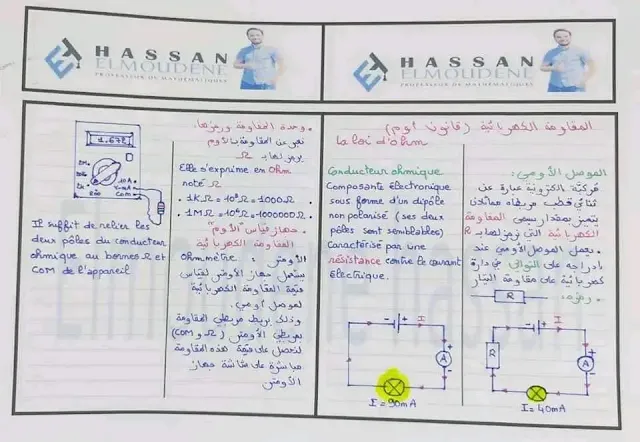 HASSAN
ELMOUDENE
PROFESSEUR DE MATHÉMATIQUES
HASSAN
ELMOUDENE
PROFESSEUR DE MATHÉMATIQUES
المقاومة الكهربائية (قانون أوم)
La loi d'ohm
الموصل الأومي:
مركبة إلكترونية عبارة عن
ثنائي قطب مربطاه مماثلان
يتميز بمقدار يسمى المقاومة
الكهربائية التي نرمز لها بـ R
. يعمل الموصل الأومي عند
إدراجه على التوالي في دارة
كهربائية على مقاومة التيار
. رمزه:
R
Conducteur ohmique
Composante électronique
sous forme d'un dipôle
non polarisé (ses deux
pôles sont semblables)
Caractérisé par une
résistance contre le courant
électrique.
- + I
+
A
-
I = 90mA
- + I
R
+
A
-
I = 40mA
. وحدة المقاومة ورمزها.
نعبر عن المقاومة بالأوم
يرمز لها بـ Ω
Elle s'exprime en Ohm
noté Ω
. 1KΩ = 10³Ω = 1000Ω .
. 1MΩ = 10⁶Ω = 1000000Ω .
. جهاز قياس "الأوم"
المقاومة الكهربائية
الأومتر : Ohmmètre
يستعمل جهاز الأومتر لقياس
قيمة المقاومة الكهربائية
لموصل أومي.
وذلك بربط مربطي المقاومة
بمربطي الأومتر (Ω و COM)
لنحصل على قيمة هذه المقاومة
مباشرة على شاشة جهاز
الأومتر
10A
COM
Il suffit de relier les
deux pôles du conducteur
ohmique au bornes Ω et
COM de l'appareil